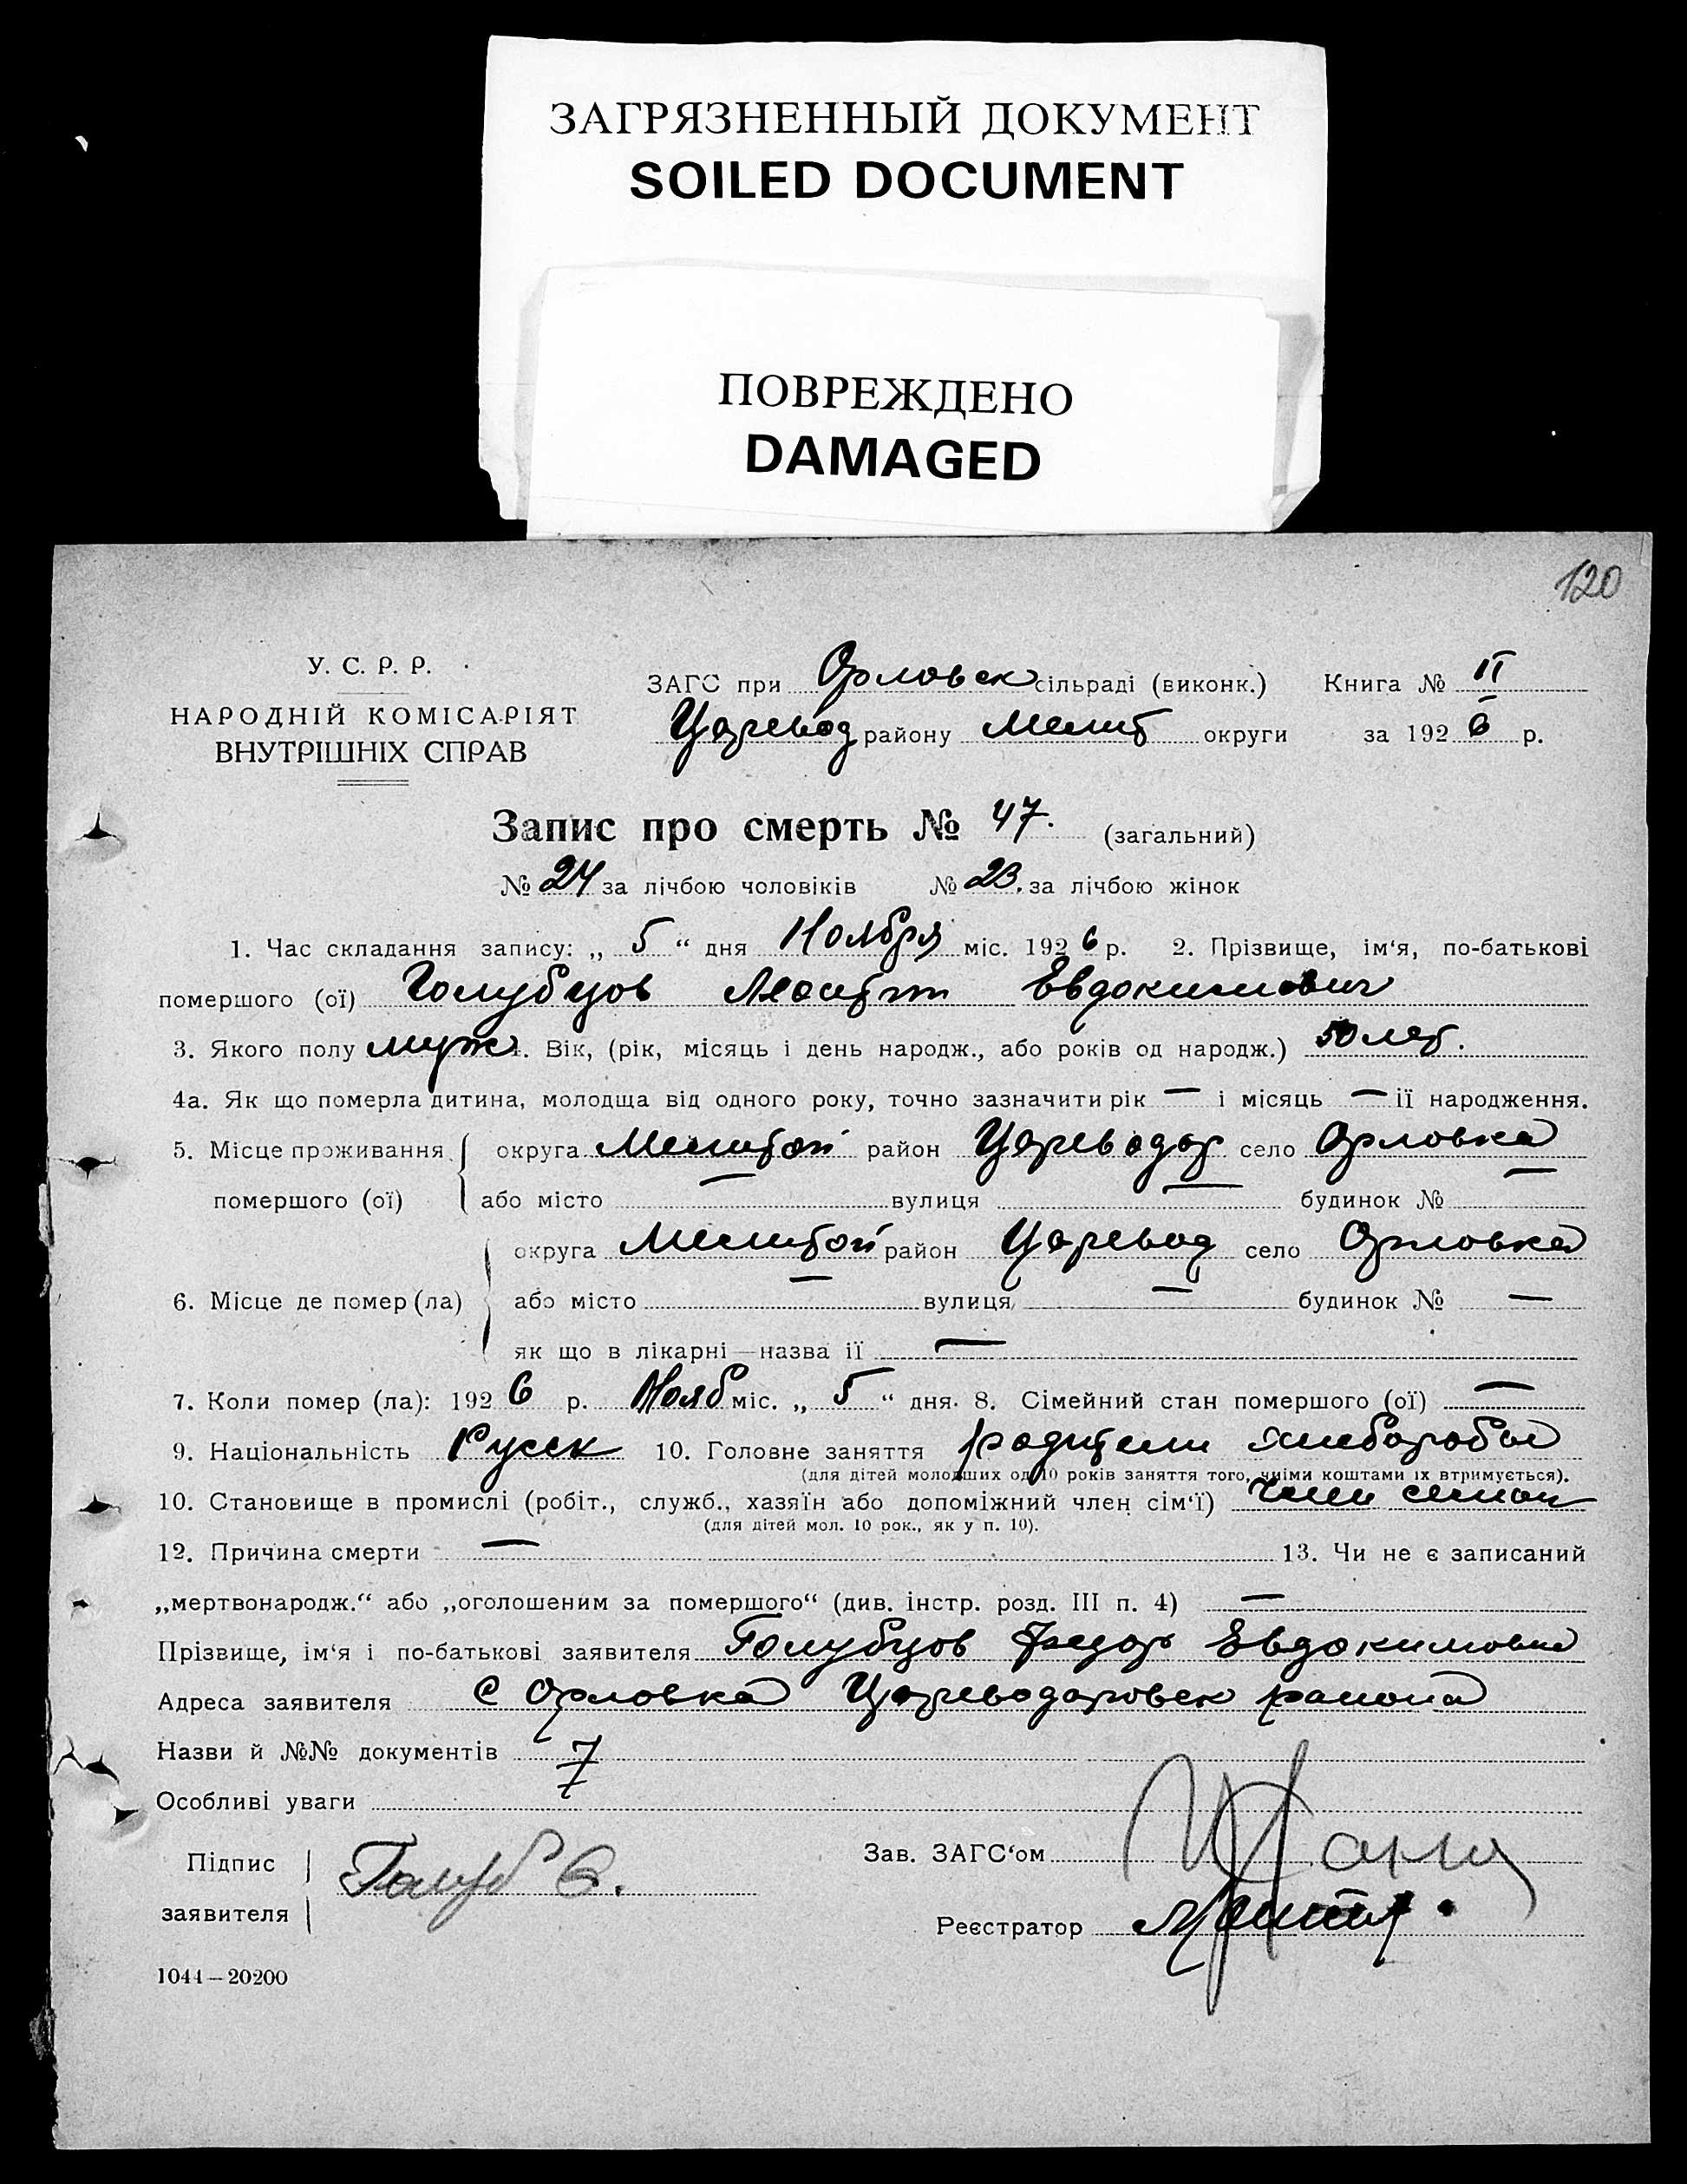 ЗАГРЯЗНЕННЫЙ ДОКУМЕНТ
SOILED DOCUMENT
ПОВРЕЖДЕНО
DAMAGED
120
У. С. Р. Р.
НАРОДНІЙ КОМІСАРІЯТ
ВНУТРІШНІХ СПРАВ
ЗАГС при Орловск сільраді (виконк.) Книга № II
Царевод району Мелит округи за 1926 р.
Запис про смерть № 47. (загальний)
№ 24 за лічбою чоловіків № 23. за лічбою жінок
1. Час складання запису: „ 5 “ дня Ноября міс. 1926 р. 2. Прізвище, ім‘я, по-батькові
помершого (ої) Голубцов Евдокимович
3. Якого полу муж 4. Вік, (рік, місяць і день народж., або років од народж.) 50 лет.
4а. Як що померла дитина, молодща від одного року, точно зазначити рік — і місяць — ії народження.
5. Місце проживання округа Мелитоп район Цареводар село Орловка
помершого (ої) або місто — вулиця — будинок № —
округа Мелитоп район Царевод село Орловка
6. Місце де помер (ла) або місто — вулиця — будинок № —
як що в лікарні — назва ії —
7. Коли помер (ла): 1926 р. Нояб міс. „ 5 “ дня. 8. Сімейний стан помершого (ої) —
9. Національність Русск 10. Головне заняття родители хлеборобы
(для дітей молодших од 10 років заняття того, чиїми коштами їх втримується).
10. Становище в промислі (робіт., служб., хазяїн або допоміжний член сім‘ї) Член
(для дітей мол. 10 рок., як у п. 10).
12. Причина смерти — 13. Чи не є записаний
„мертвонародж.“ або „оголошеним за помершого“ (див. інстр. розд. III п. 4) —
Прізвище, ім‘я і по-батькові заявителя Голубцов Федор Евдокимови
Адреса заявителя С Орловка Цареводаровск района
Назви й №№ документів
Особливі уваги
Підпис
заявителя Голуб
Зав. ЗАГС‘ом
Реєстратор
1044—20200